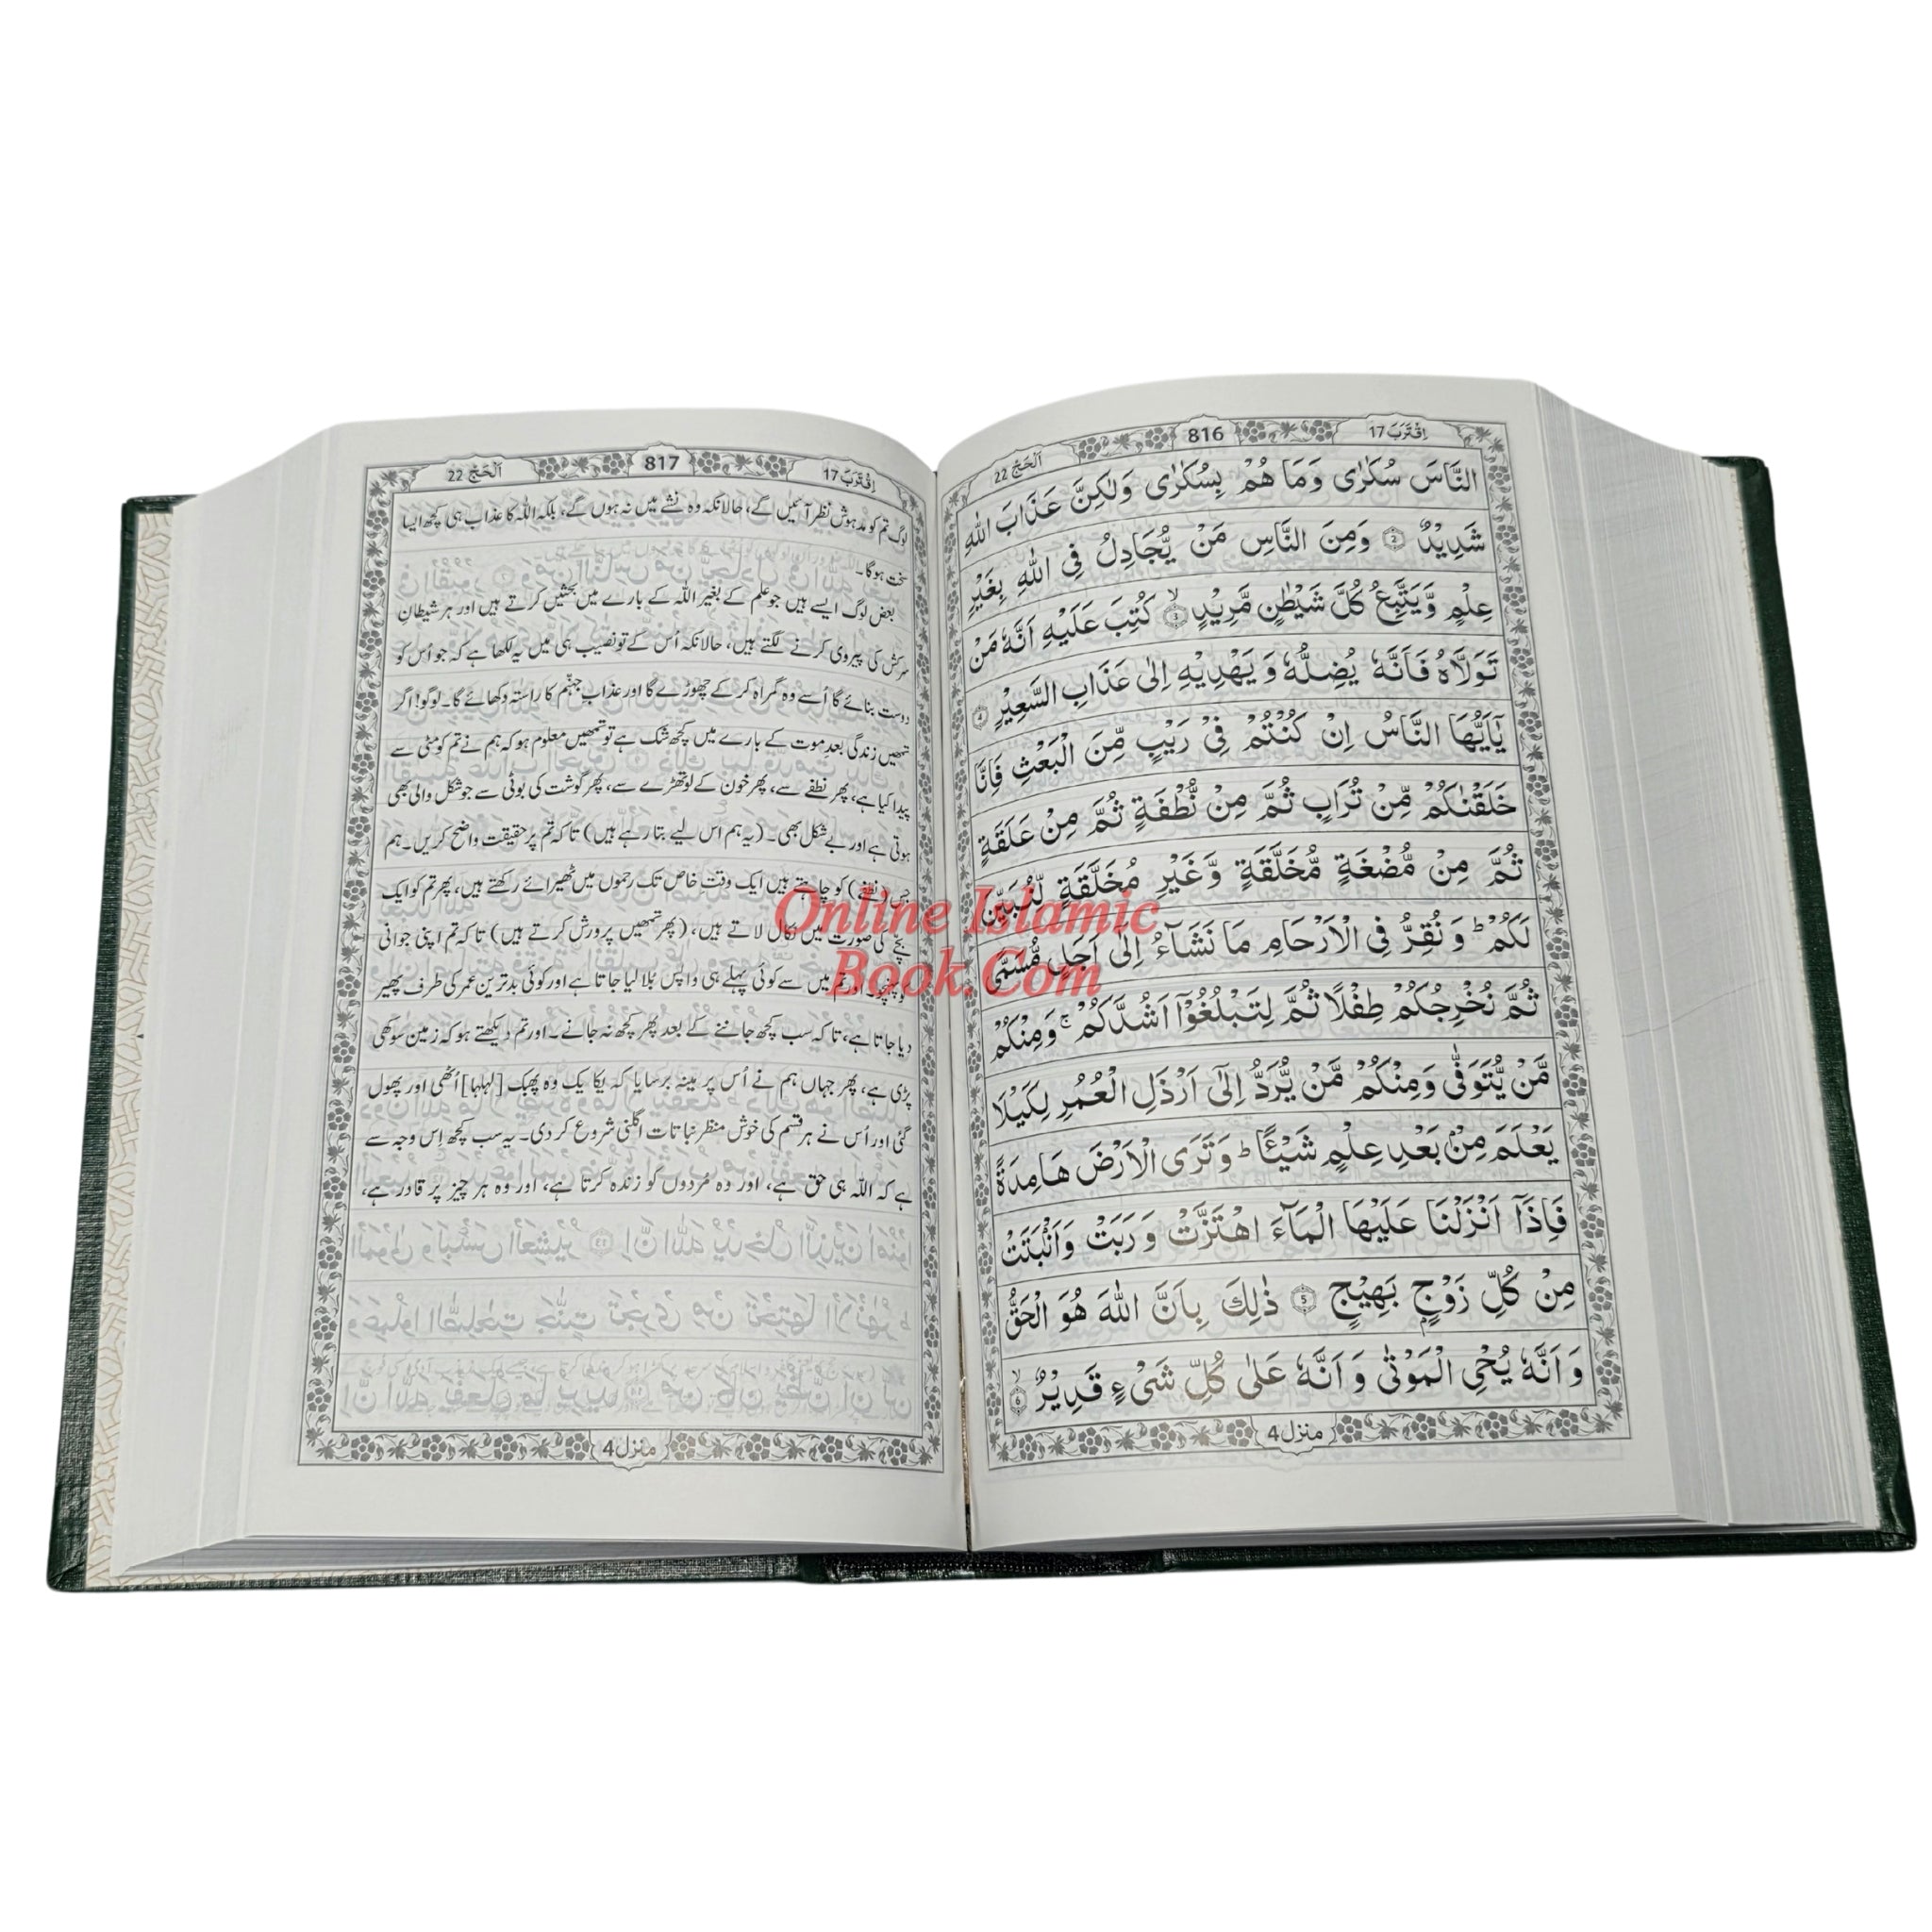 اِقْتَرَبَ 17
816
اَلْحَجّ 22
النَّاسَ سُكٰرٰى وَمَا هُمْ بِسُكٰرٰى وَلٰكِنَّ عَذَابَ اللّٰهِ
شَدِيْدٌ 2 وَمِنَ النَّاسِ مَنْ يُّجَادِلُ فِى اللّٰهِ بِغَيْرِ
عِلْمٍ وَّيَتَّبِعُ كُلَّ شَيْطٰنٍ مَّرِيْدٍ ۙ 3 كُتِبَ عَلَيْهِ اَنَّهٗ مَنْ
تَوَلَّاهُ فَاَنَّهٗ يُضِلُّهٗ وَيَهْدِيْهِ اِلٰى عَذَابِ السَّعِيْرِ 4
يٰٓاَيُّهَا النَّاسُ اِنْ كُنْتُمْ فِىْ رَيْبٍ مِّنَ الْبَعْثِ فَاِنَّا
خَلَقْنٰكُمْ مِّنْ تُرَابٍ ثُمَّ مِنْ نُّطْفَةٍ ثُمَّ مِنْ عَلَقَةٍ
ثُمَّ مِنْ مُّضْغَةٍ مُّخَلَّقَةٍ وَّغَيْرِ مُخَلَّقَةٍ لِّنُبَيِّنَ
لَكُمْ ؕ وَنُقِرُّ فِى الْاَرْحَامِ مَا نَشَآءُ اِلٰٓى اَجَلٍ مُّسَمًّى
ثُمَّ نُخْرِجُكُمْ طِفْلًا ثُمَّ لِتَبْلُغُوْٓا اَشُدَّكُمْ ۚ وَمِنْكُمْ
مَّنْ يُّتَوَفّٰى وَمِنْكُمْ مَّنْ يُّرَدُّ اِلٰٓى اَرْذَلِ الْعُمُرِ لِكَيْلَا
يَعْلَمَ مِنْۢ بَعْدِ عِلْمٍ شَيْـًٔا ؕ وَتَرَى الْاَرْضَ هَامِدَةً
فَاِذَآ اَنْزَلْنَا عَلَيْهَا الْمَآءَ اهْتَزَّتْ وَرَبَتْ وَاَنْۢبَتَتْ
مِنْ كُلِّ زَوْجٍۭ بَهِيْجٍ 5 ذٰلِكَ بِاَنَّ اللّٰهَ هُوَ الْحَقُّ
وَاَنَّهٗ يُحْىِ الْمَوْتٰى وَاَنَّهٗ عَلٰى كُلِّ شَىْءٍ قَدِيْرٌ ۙ 6
منزل 4
اِقْتَرَبَ 17
817
اَلْحَجّ 22
لوگ تم کو مدہوش نظر آئیں گے، حالانکہ وہ نشے میں نہ ہوں گے، بلکہ اللہ کا عذاب ہی کچھ ایسا
سخت ہوگا۔
بعض لوگ ایسے ہیں جو علم کے بغیر اللہ کے بارے میں بحثیں کرتے ہیں اور ہر شیطانِ
سرکش کی پیروی کرنے لگتے ہیں، حالانکہ اُس کے تو نصیب ہی میں یہ لکھا ہے کہ جو اُس کو
دوست بنائے گا اُسے وہ گمراہ کر کے چھوڑے گا اور عذابِ جہنّم کا راستہ دکھائے گا۔ لوگو! اگر
تمھیں زندگی بعدِ موت کے بارے میں کچھ شک ہے تو تمھیں معلوم ہو کہ ہم نے تم کو مٹی سے
پیدا کیا ہے، پھر نطفے سے، پھر خون کے لوتھڑے سے، پھر گوشت کی بوٹی سے جو شکل والی بھی
ہوتی ہے اور بے شکل بھی۔ (یہ ہم اس لیے بتا رہے ہیں) تاکہ تم پر حقیقت واضح کریں۔ ہم
جس (نطفے) کو چاہتے ہیں ایک وقتِ خاص تک رحموں میں ٹھیرائے رکھتے ہیں، پھر تم کو ایک
بچّے کی صورت میں نکال لاتے ہیں، (پھر تمھیں پرورش کرتے ہیں) تاکہ تم اپنی جوانی
کو پہنچو۔ اور تم میں سے کوئی پہلے ہی واپس بُلا لیا جاتا ہے اور کوئی بدترین عمر کی طرف پھیر
دیا جاتا ہے، تاکہ سب کچھ جاننے کے بعد پھر کچھ نہ جانے۔ اور تم دیکھتے ہو کہ زمین سوکھی
پڑی ہے، پھر جہاں ہم نے اُس پر مینہ برسایا کہ یکایک وہ پھبک [لہلہا] اُٹھی اور پھول
گئی اور اُس نے ہر قسم کی خوش منظر نباتات اگلنی شروع کر دی۔ یہ سب کچھ اِس وجہ سے
ہے کہ اللہ ہی حق ہے، اور وہ مُردوں کو زندہ کرتا ہے، اور وہ ہر چیز پر قادر ہے،
منزل 4
Online Islamic
Book.Com